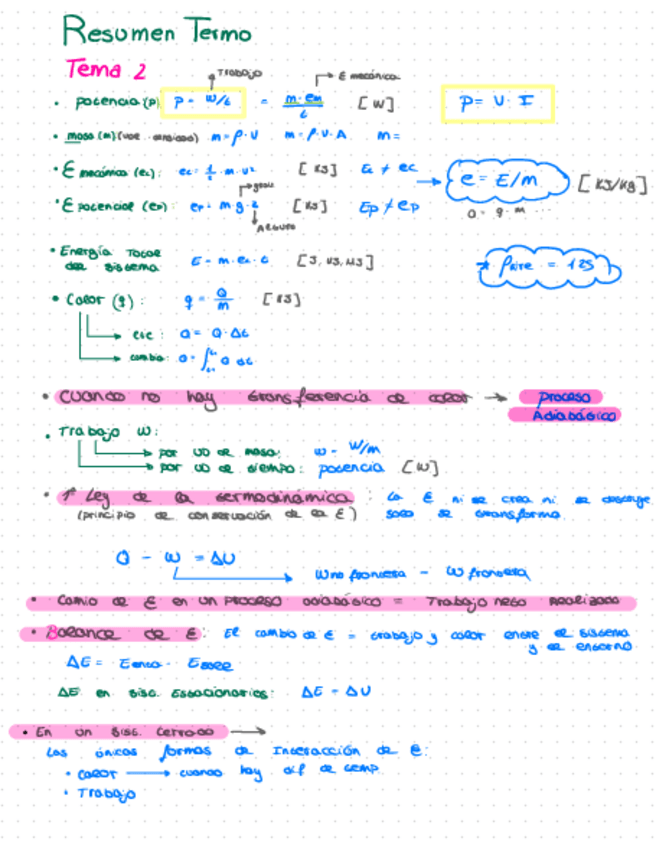 Resumen Termo
Tema 2
Trabajo
E mecánica
• potencia (P) P = W/t = m·em/t [W] P = V·I
• masa (m) m = ρ·V m = ρ·V·A m =
• E mecánica (ec): ec = 1/2·m·v² [KJ] Ec ≠ ec → e = E/m [KJ/Kg]
• E potencial (ep): ep = m·g·z [KJ] Ep ≠ ep
Altura
• Energía Total del sistema E = m·ec·t [J, KJ, MJ]
* ρaire = 125
• Calor (q): q = Q/m [KJ]
cte: Q = Q·Δt
cambia: Q = ∫ Q dt
• Cuando no hay transferencia de calor → proceso
Adiabático
• Trabajo W:
por UD de masa: w = W/m
por UD de tiempo: potencia [W]
• 1ª Ley de la termodinámica: la E ni se crea ni se destruye
(principio de conservación de la E) solo se transforma
Q - W = ΔU
W no frontera - W frontera
• Camio de E en un proceso adiabático = Trabajo neto Realizado
• Balance de E: El cambio de E = trabajo y calor entre el sistema
y el entorno
ΔE = Eentra - Esale
ΔE en sist. Estacionarios: ΔE = ΔU
• En un Sist. Cerrado →
Las únicas formas de Interacción de E:
• Calor → cuando hay dif de temp
• Trabajo